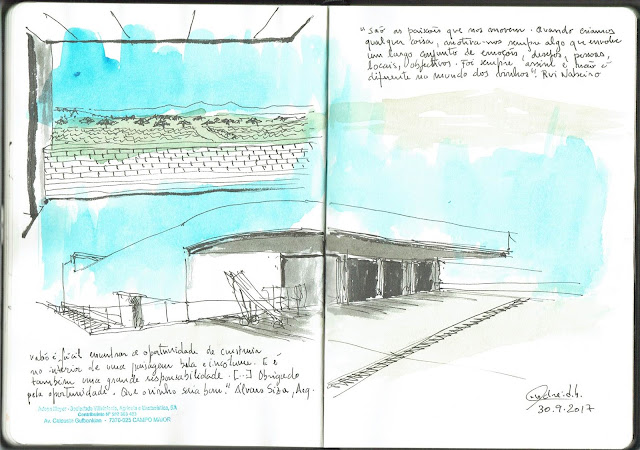 "São as paixões que nos movem. Quando criamos
qualquer coisa, motiva-nos sempre algo que envolve
um largo conjunto de emoções, desejos, pessoas,
locais, objectivos. Foi sempre assim e não é
diferente no mundo dos vinhos". Rui Nabeiro
"Não é fácil encontrar a oportunidade de construir
no interior de uma paisagem bela e incólume. E é
também uma grande responsabilidade. [...] Obrigado
pela oportunidade. Que o vinho seja bom." Álvaro Siza, Arq.
Adega Mayor - Sociedade Vitivinícola, Agrícola e
Contribuinte Nº
Av. Calouste Gulbenkian - 7370-025 CAMPO MAIOR
30.9.2017